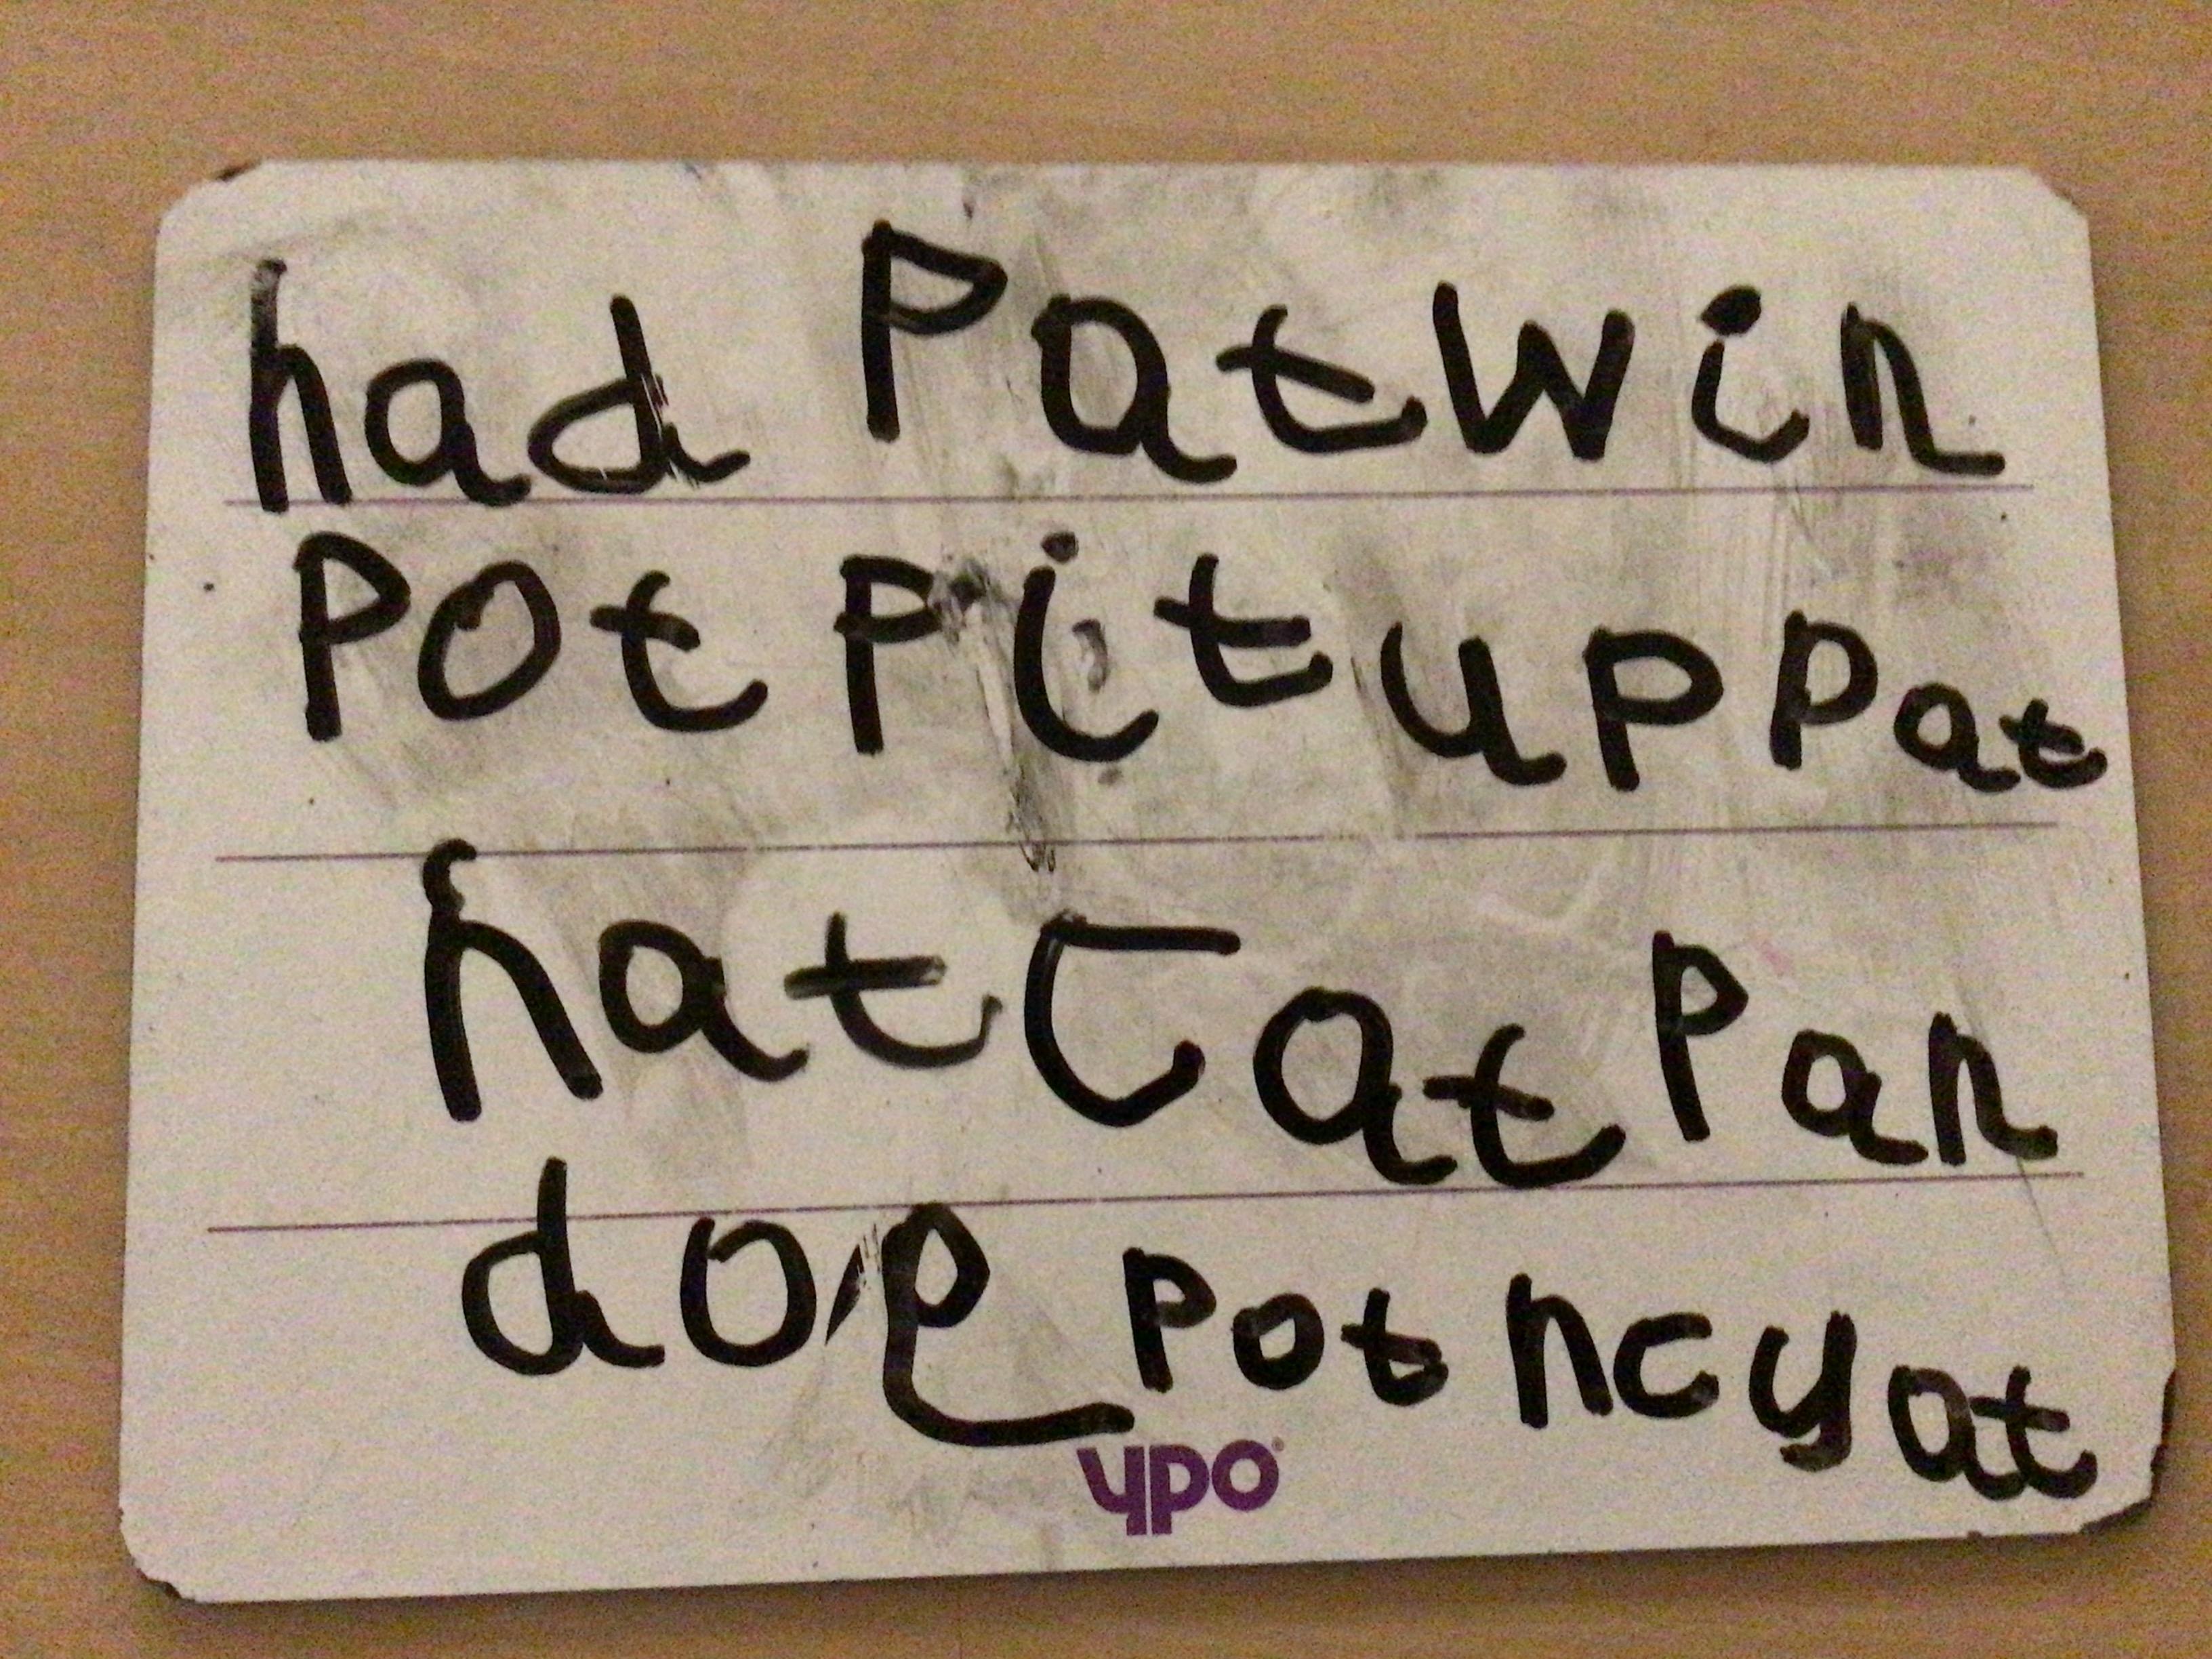 had Pat win
Pot Pit up Pat
hat Cat Pan
dop Pot ncyat
ypo